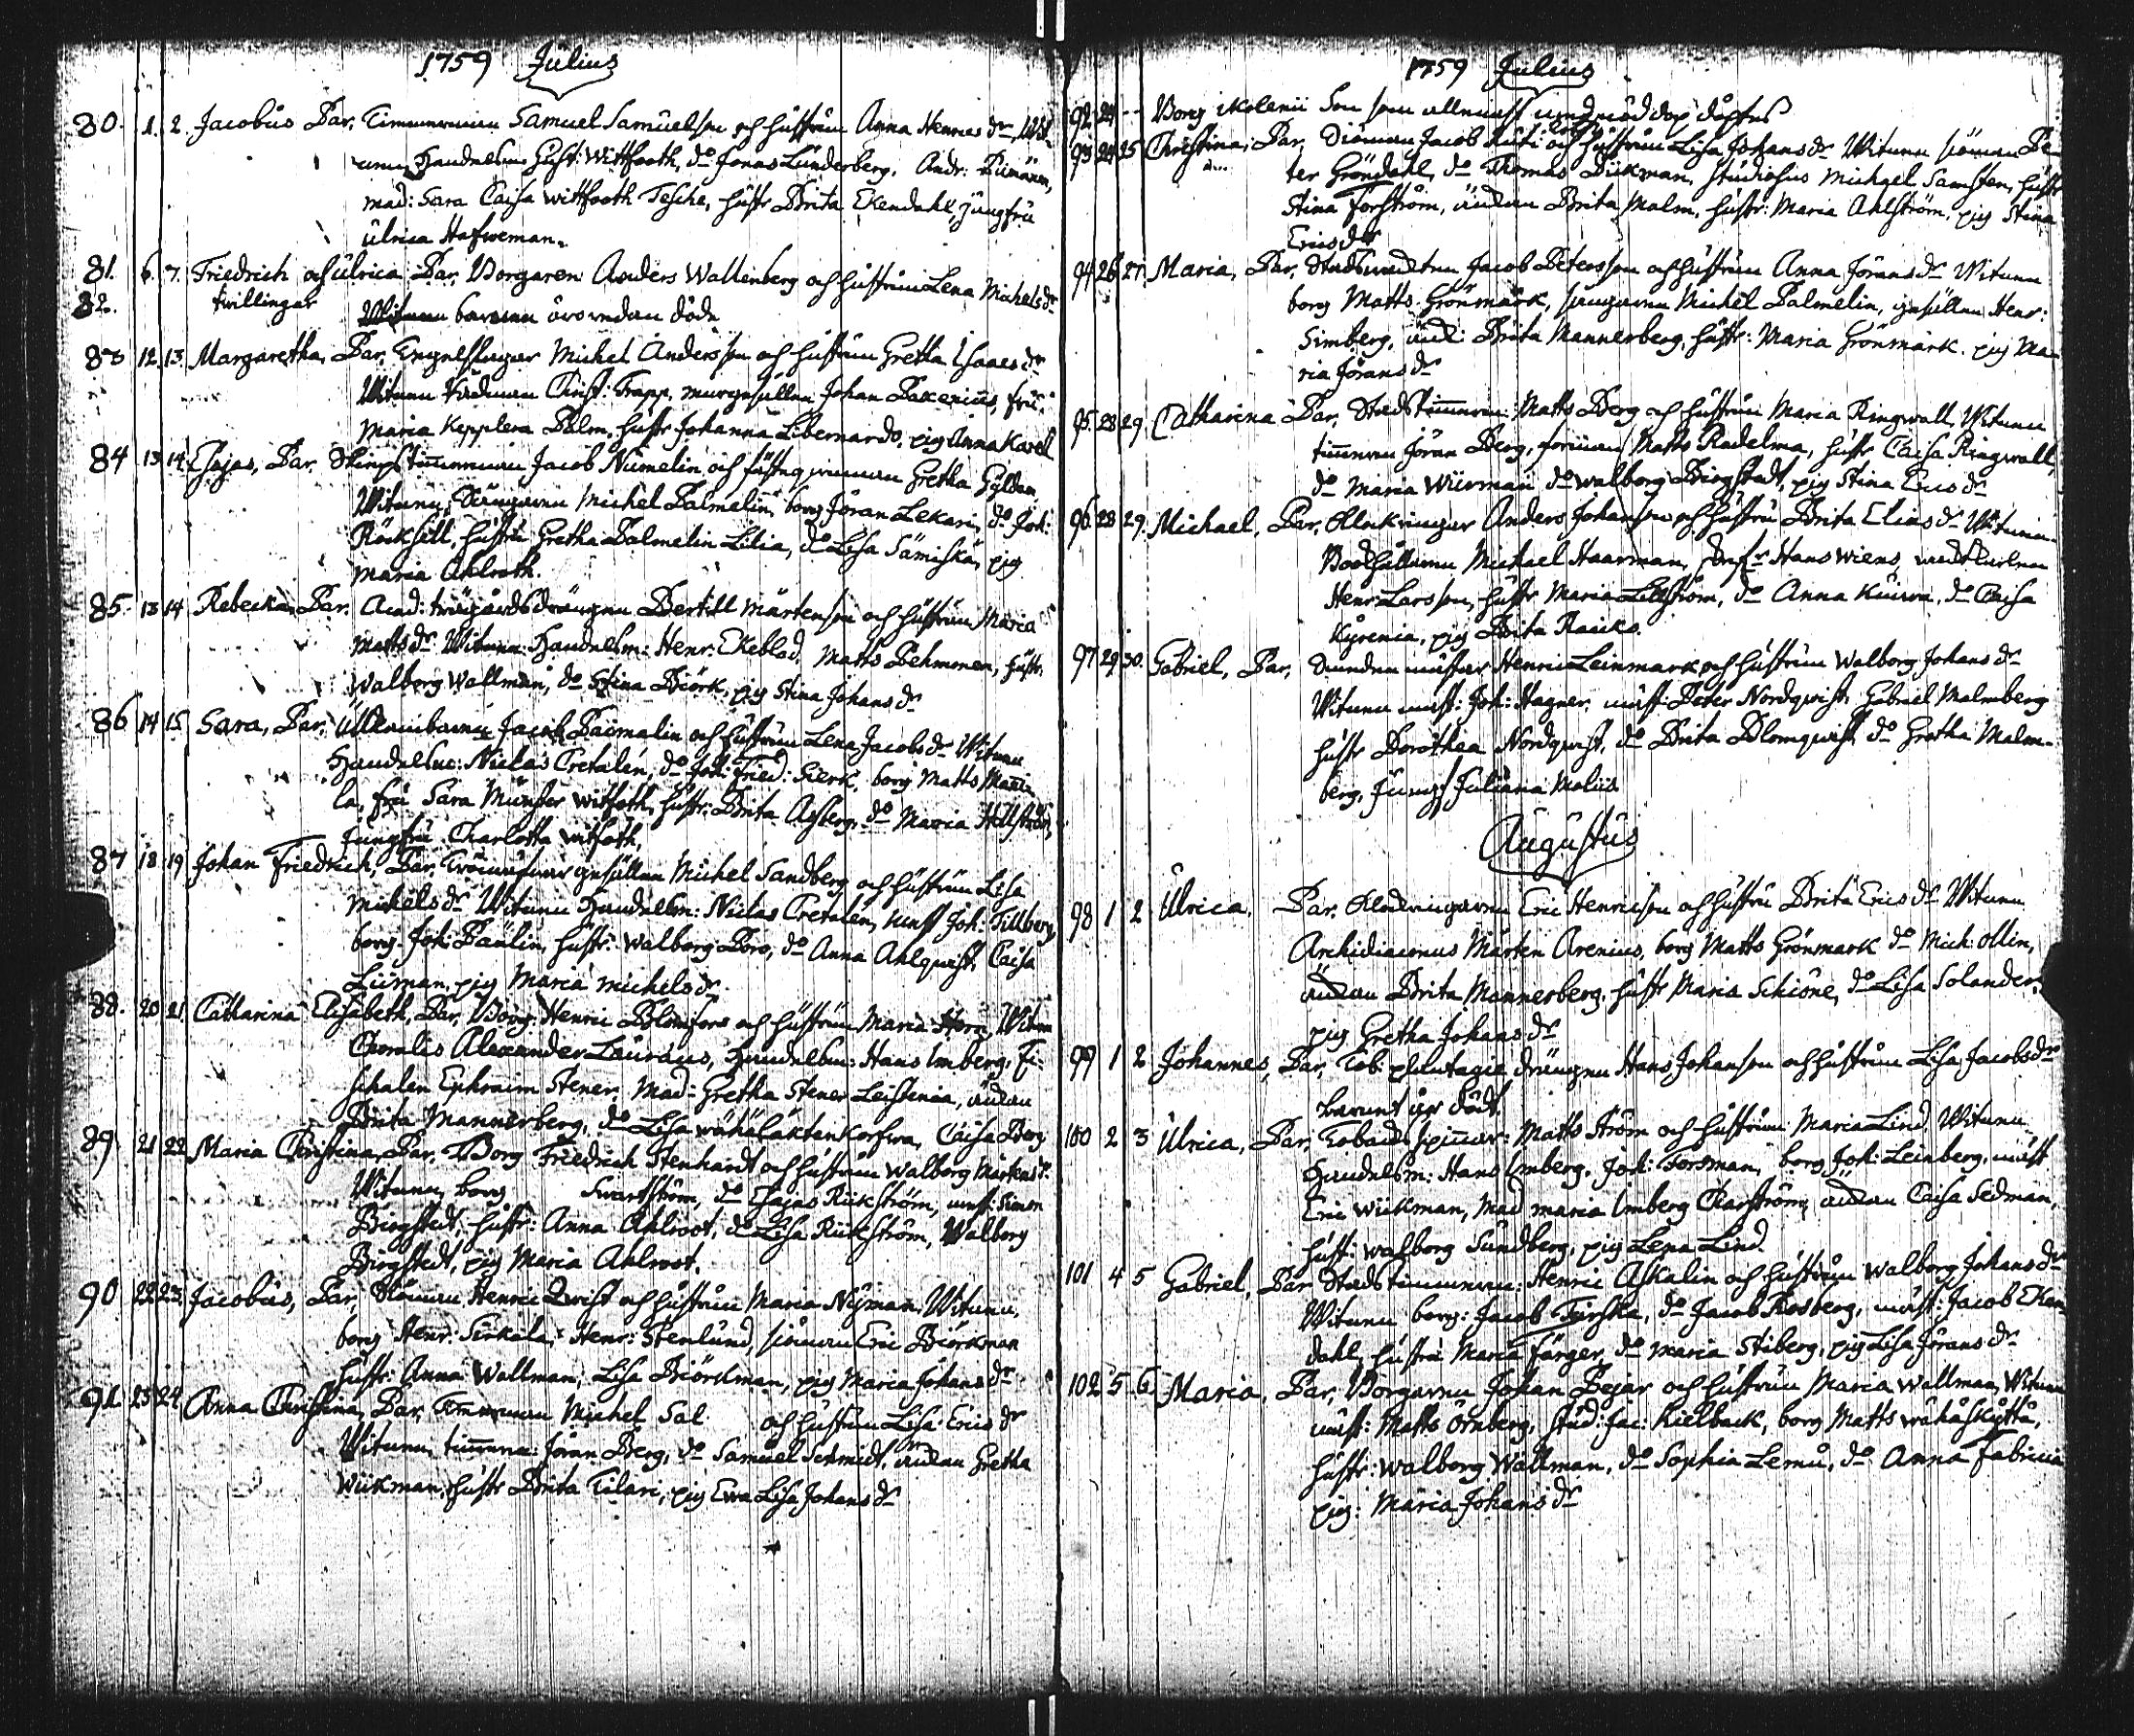 1759 Julius
80. 1. 2. Jacobus Par. Timmerman Samuel Samuelson och hustrun Anna Henricsdr
Handelsm Gust: Wittfooth, do Jonas Lunderberg, Andr:
mad: Sara Caisa Wittfooth Tesche, hustr Brita Ekendahl, Jungfru
Ulrica Hafweman.
81. 6. 7. Friedrich och Ulrica Par. Borgaren Anders Wallenberg och hustrun Lena Michelsdr
82. twillingar barnen äro redan döda
83 12. 13. Margaretha, Par. Michel Andersson och hustrun Gretha Isaacsdr
Witnen Rådman Christ: Trapp, murgesällen Johan Pakenius, fru
Maria Kepplera Palm, hustr Johanna Libernardo, pig Anna Karel
84 13 14 Esajas, Par. Skeps timmerman Jacob Numelin och fästeqwinnan Gretha Gylden
Witnen, Michel Palmelin, borg Jöran Lekari, do Joh:
Röckfell, hustru Gretha Palmelin Lilia, do Lisa Sämiskä, pig
Maria Ahlroth.
85 13 14 Rebecka, Par. Acad: trägårdsdrängen Bertill Mårtenson och hustrun Maria
Mattsdr Witnen Handelsm: Henr: Ekeblad, Matts Behmonen, hustr
Walborg Wallman, do Stina Biörk, pig Stina Johansdr
86 14 15 Sara, Par. Jacob Päimalin och hustrun Lena Jacobsdr Witnen
Handelsm: Niclas Cretalen, do Joh: Fried: Sierk, borg Matts Manni
la, fru Sara Münster Witfoth, hustr: Brita Asberg, do Maria Hellström,
Jungfru Charlotta Witfoth.
87 18 19 Johan Friedrich, Par. gesällen Michel Sandberg och hustrun Lisa
Michelsdr Witnen Handelsm: Niclas Cretalen, mäst Joh: Tillberg
borg Joh: Paulin, hustr: Walborg Boro, do Anna Ahlqwist, Caisa
Liiman, pig Maria Michelsdr.
88. 20 21 Catharina Elisabeth, Par. Borg: Henric Blomfors och hustrun Maria Horn, Witnen
Choralis Alexander Lauraus, Handelsm: Hans Imberg, Fi-
schalen Ephraim Stener, Mad: Gretha Stener Leistenia, änkan
Brita Mannerberg, do Lisa Korfwa, Caisa Berg
89 21 22 Maria Christina, Par. Borg Friedrich Stenhardt och hustrun Walborg Markusdr
Witnen, borg Swartström, do Esajas Rükström, mäst: Simon
Birgstedt, hustr: Anna Ahlroot, do Lisa Rükström, Walborg
Birgstedt, pig Maria Ahlroot.
90 22 23. Jacobus, Par. Henric Qwist och hustrun Maria Nyman Witnen,
borg Henr: Sirkala, Henr: Stenlund, siöman Eric Biörkman
hustr: Anna Wallman, Lisa Biörckman, pig Maria Johansdr
91. 23 24. Anna Christina, Par. Timmerman Michel Sal och hustrun Lisa Ericsdr
Witnen, timmerm: Jöran Berg, do Samuel Schmidt, änkan Gretha
Wiikman, hustr Brita Tilari, pig Ewa Lisa Johansdr
1759 Julius
92. 24 -- Borg Molenii Son som allenast nöd dop
93 24 25 Christina, Par. Siöman Jacob Ruti och hustrun Lisa Johansdr Witnen siöman Pe-
ter Gröndahl, do Thomas Dükman, studiosus Michael Samsten, hustr
Stina Forström, änkan Brita Malm, hustr: Maria Ahlström, pig Stina
Ericsdr
94 26 27. Maria, Par. Jacob Petersson och hustrun Anna Jöransdr Witnen
borg Matts Grönmark, Michel Palmelin, gesällen Henr:
Simberg, änk: Brita Mannerberg, hustr: Maria Grönmark, pig Ma-
ria Jöransdr
95. 28 29. Catharina Par. Stadstimmerm: Matts Berg och hustrun Maria Ringwall, Witnen
timmerm Jöran Berg, Matts Radelma, hustr Caisa Ringwall,
do Maria Wiirman do Walborg Birgstedt, pig Stina Ericsdr
96. 28 29. Michael, Par. Anders Johanson och hustru Brita Eliasdr Witnen
Michael Haarman, Hans Wiens,
Henr Larsson, hustr Maria Lillström, do Anna Kuurn, do Caisa
Kyrenia, pig Brita Raicko.
97 29 30. Gabriel, Par. Henric Leinmark och hustrun Walborg Johansdr
Witnen mäst: Joh: Hagner, mäst: Peter Nordqwist, Gabriel Malmberg
hustr Dorothea Nordqwist, do Brita Blomqwist, do Gretha Malm-
berg, Jungf Juliana Moliis
Augustus
98 1 2. Ulrica, Par. Eric Henricson och hustru Brita Ericsdr Witnen
Archidiaconus Mårten Arenius, borg Matts Grönmark do Mich: Ollin,
änkan Brita Mannerberg, hustr Maria Schiöne, do Lisa Solander.
pig Gretha Johansdr
99 1 2 Johannes, Par. Tob: plantagie drängen Hans Johanson och hustrun Lisa Jacobsdr
barnet är dödt.
100 2 3 Ulrica, Par. Tobaks spinner: Matts Ström och hustrun Maria Lind, Witnen
Handelsm: Hans Imberg, Joh: Forsman, borg Joh: Leinberg, mäst
Eric Wiikman, Mad Maria Imberg Charström, änkan Caisa Sedman,
hust: Walborg Sundberg, pig Lena Lind.
101 4 5 Gabriel, Par. Stadstimmerm: Henric Askalin och hustrun Walborg Johansdr
Witnen borg: Jacob do Jacob Rosberg, mäst: Jacob Eken
dahl, hustru Maria Färger, do Maria Stiberg, pig Lisa Jöransdr
102 5 6. Maria, Par. Borgaren Johan Bejar och hustrun Maria Wallman, Witnen
mäst: Matts Örnberg, stud: Jac: Kielback, borg Matts
hustr: Walborg Wallman, do Sophia Lemu, do Anna Fabricia
pig: Maria Johansdr